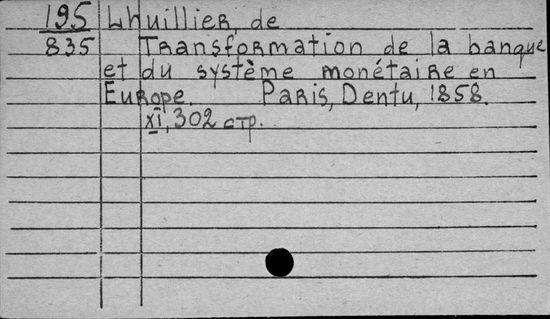 195 Lhuillier, de
835 Transformation de la banque
et du système monétaire en
Europe. Paris, Dentu, 1858.
XI, 302 стр.